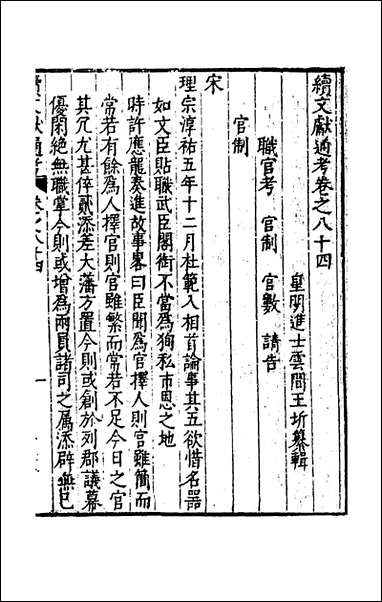 續文獻通考卷之八十四
皇明進士雲間王圻纂輯
職官考　官制　官數　請告
官制
宋
理宗淳祐五年十二月杜範入相首論事其五欲惜名器
如文臣貼職武臣閣衛不當爲狥私市恩之地
時許應龍奏進故事畧曰臣聞爲官擇人則官雖簡而
常若有餘爲人擇官則官雖繁而常若不足今日之官
其冗尤甚倅貳添差大藩方置今則或創於列郡議幕
優閑絶無職掌今則或增爲兩員諸司之属添辟無已
續文獻通考
卷之八十四
一